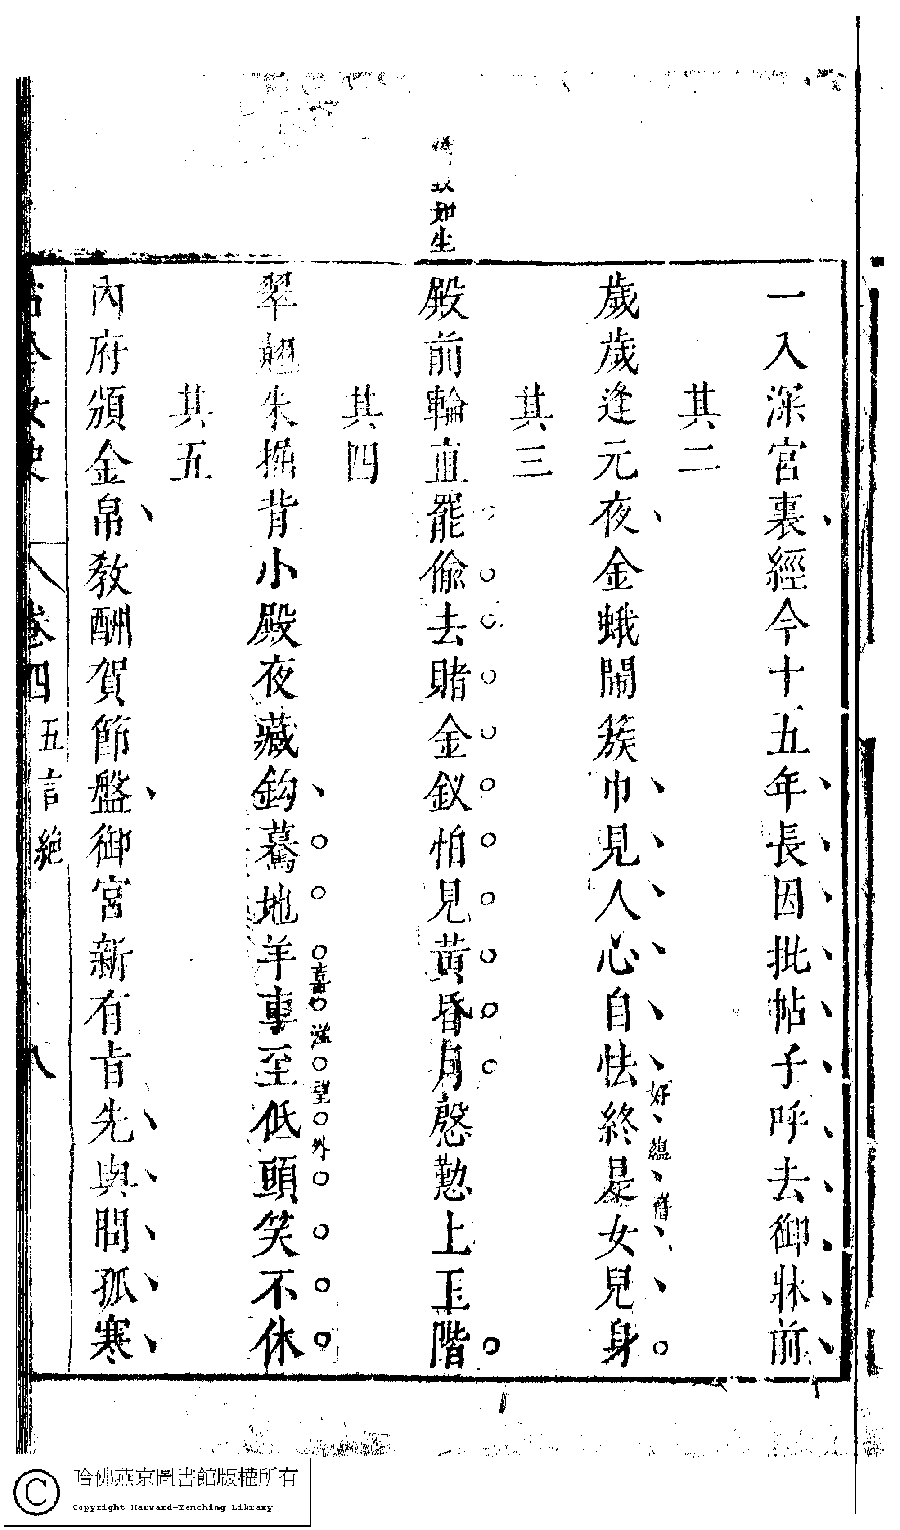 一入深宮裏經今十五年長因批帖子呼去御牀前
其二
歲歲逢元夜金蛾鬧簇巾見人心自怯終是女兒身
好蘊藉
其三
殿前輪直罷偷去賭金釵怕見黃昏月慇懃上玉階
如生
其四
翠翹朱掘背小殿夜藏鈎驀地羊車至低頭笑不休
望外
其五
內府頒金帛教酬賀節盤御宮新有旨先與問孤寒
古今女史 卷四 五言絶 八
哈佛燕京圖書館版權所有
Copyright Harvard-Yenching Library